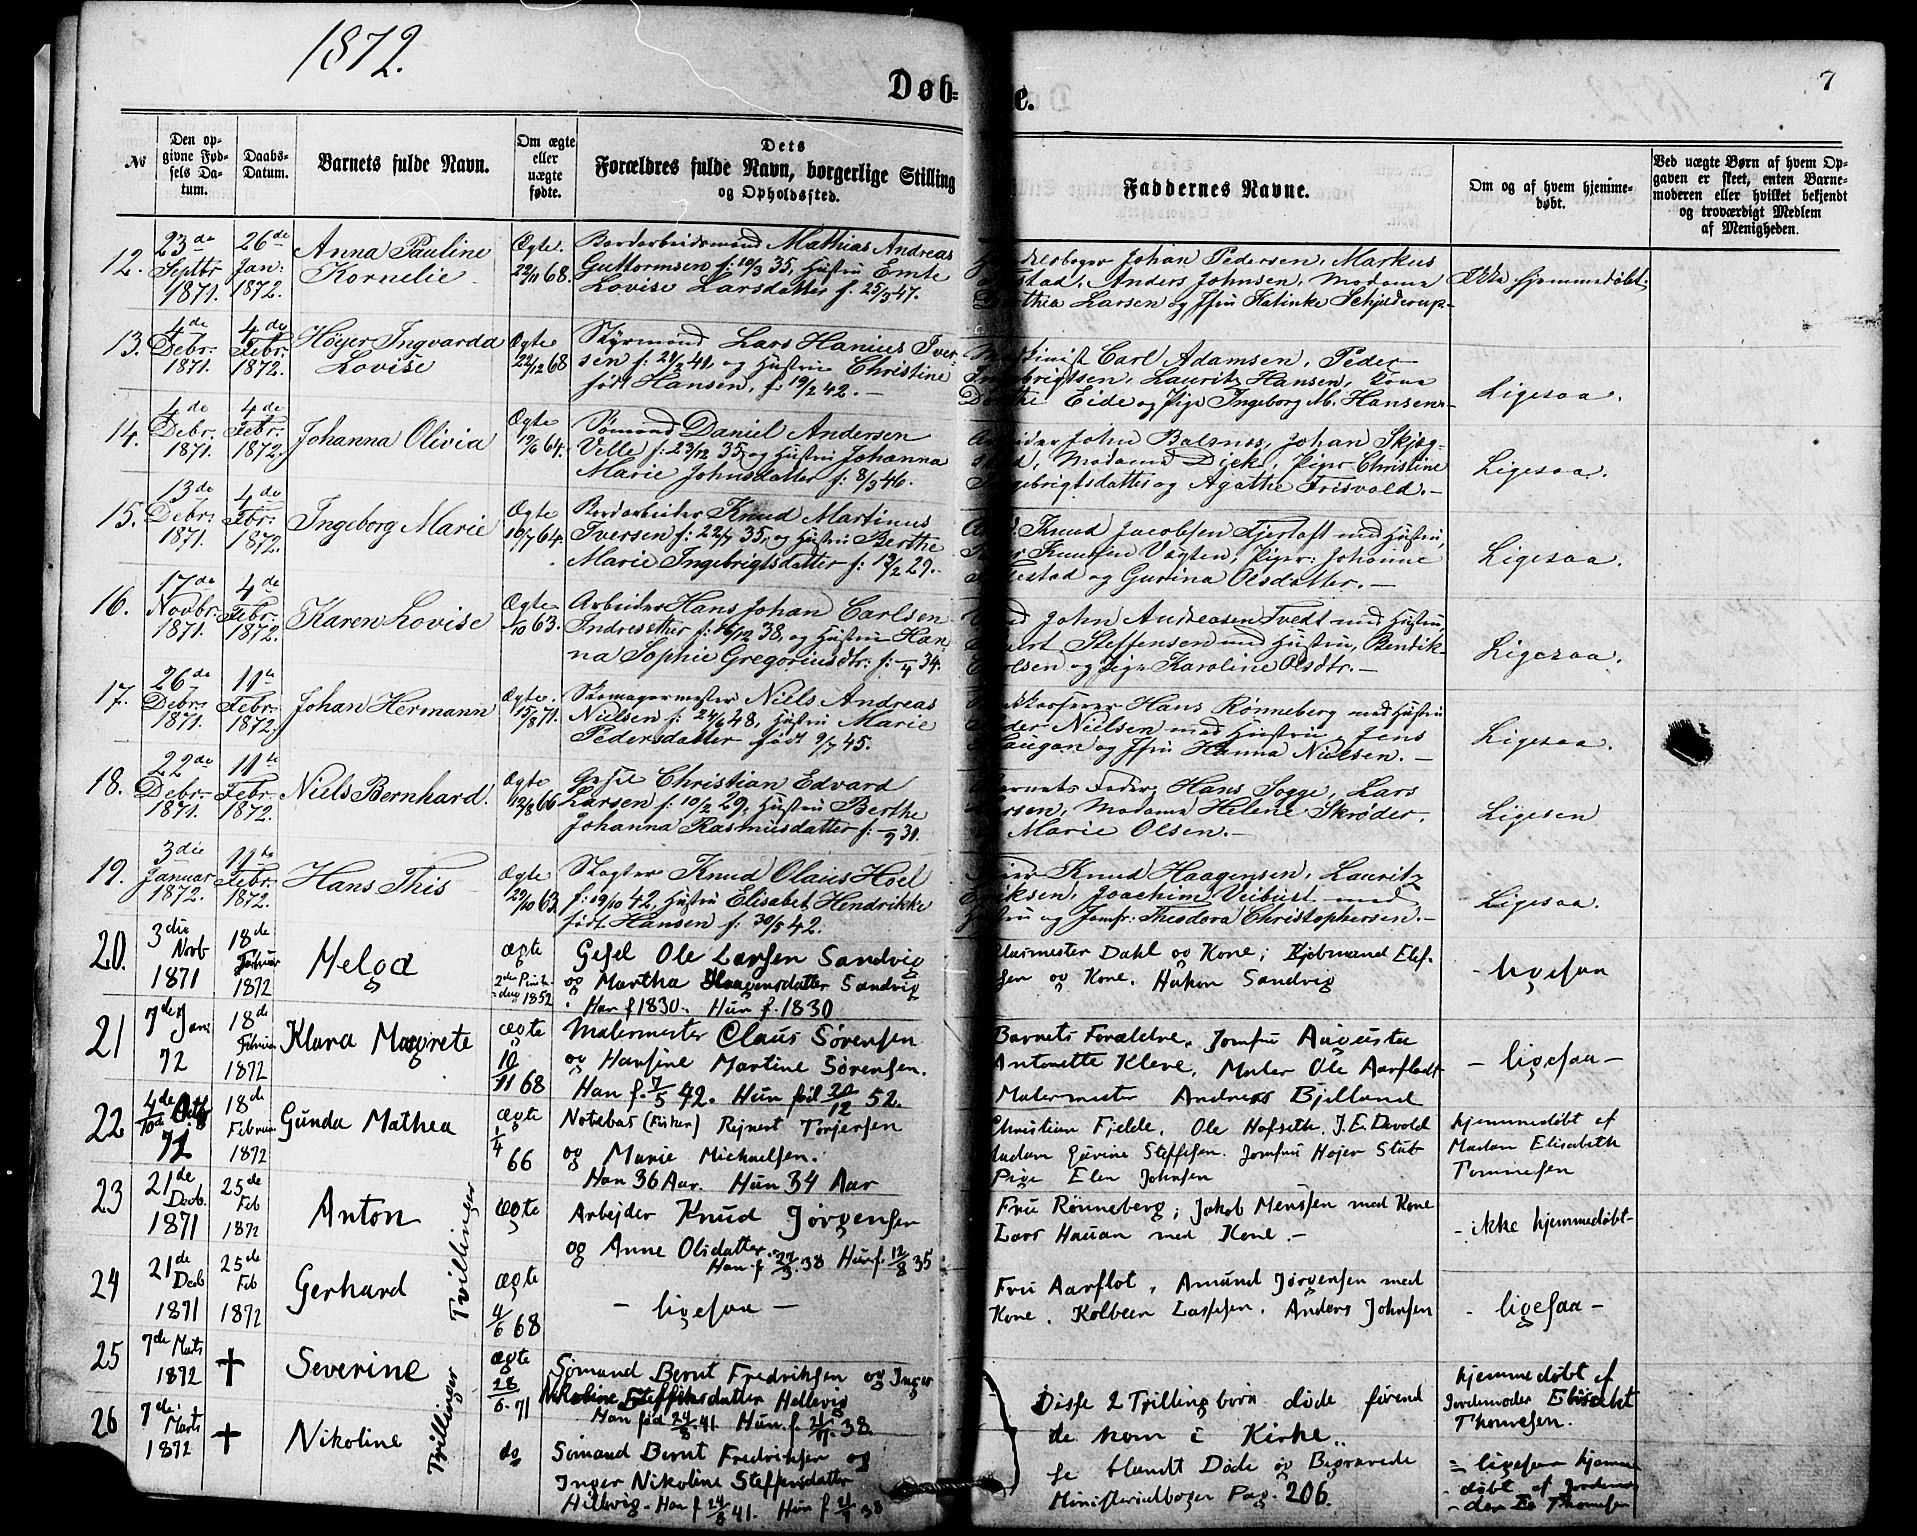 1872.
Døb-
te.
7
No
Den opgivne Fødsels Datum.
Daabs-Datum.
Barnets fulde Navn.
Om ægte eller uægte fødte.
Dets Forældres fulde Navn, borgerlige Stilling og Opholdssted.
Faddernes Navne.
Om og af hvem hjemmedøbt.
Ved uægte Børn af hvem Opgaven er skeet, enten Barnemoderen eller hvilket bekjendt og troværdigt Medlem af Menigheden.
12. 23de Septbr 1871. 26de Jan: 1872.
Anna Pauline Kornelie
Ægte. 22/11 68.
Bordarbeidsmand Mathias Andreas
Guttormsen f: 10/3 35, Hustru Emte
Lovise Larsdatter f. 25/3 47.
Johan Pedersen, Markus
Anders Johnsen, Madame
Larsen og Jfru Katinke Schjelderup.
Ikke hjemmedøbt.
13. 4de Debr. 1871. 4de Febr. 1872.
Høyer Ingvarda Lovise
Ægte 22/12 68
Styrmand Lars Hanius Iver-
sen f: 21/2 41, og Hustru Christine
født Hansen, f: 19/2 42. -
Carl Adamsen, Peder
Lauritz Hansen, Kone
Eide og Pige Ingeborg M. Hansen.
Ligesaa.
14. 4de Debr. 1871. 4de Febr. 1872.
Johanna Olivia
Ægte 19/6 64.
Sømand Daniel Andersen
Velle f: 23/12 35, og Hustru Johanna
Marie Johnsdatter f: 8/3 46.
John Balsnes, Johan Skjeg-
Madame Dick, Piger Christine
og Agathe Frisvold. -
Ligesaa.
15. 13de Debr. 1871. 4de Febr. 1872.
Ingeborg Marie
Ægte 10/7 64.
Bordarbeider Knud Martinus
Iversen f: 22/7 35, og Hustru Berthe
Marie Ingebrigtsdatter f: 13/2 29.
Knud Jacobsen Fjertoft med Hustru,
Knudsen Vagten, Piger: Johanne
og Gurina Olsdatter. -
Ligesaa.
16. 17de Novbr. 1871. 4de Febr. 1872.
Karen Lovise
Ægte /10 63.
Arbeider Hans Johan Carlsen
Indresether f: 16/12 38, og Hustru Han-
na Sophie Gregoriusdtr: f: -/4 34.
John Andreasen Tvedt med Hustru,
Steffensen med Hustru, Bendik
og Pige Karoline Olsdtr. -
Ligesaa.
17. 26de Debr. 1871. 11te Febr. 1872.
Johan Hermann
Ægte. 15/8 71.
Skomagermester Niels Andreas
Nielsen f: 24/6 48, Hustru Marie
Pedersdatter født 9/7 45.
Hans Rønneberg med Hustru
Nielsen med Hustru, Jens
Haugan og Jfru Hanna Nielsen. -
Ligesaa.
18. 22de Debr. 1871. 11te Febr. 1872.
Niels Bernhard.
Ægte 12/8 66
Gesel Christian Edvard
Larsen f: 10/2 29, Hustru Berthe
Johanna Rasmusdatter f: -/9 31.
Barnets Fader, Hans Sogge, Lars
Madame Helene Skrøder,
Marie Olsen. -
Ligesen
19. 3die Januar 1872. 11te Febr. 1872.
Hans This
Ægte 29/10 63.
Slagter Knud Olaus Hoel
f: 19/10 42, Hustru Elisabet Hendrikke
født Hansen f: 30/5 42.
Knud Haagensen, Lauritz
Eriksen, Joachim Veibust med
Hustru og Jomfr: Theodora Christophersen. -
Ligesaa.
20. 3die Novb 1871 18de Februar 1872
Helga
ægte 2den Pintsedag 1852
Gesel Ole Larsen Sandvig
og Martha Haagensdatter Sandvig
Han f 1830. Hun f. 1830
Dahl og Kone; Kjøbmand Elef-
sen og Kone. Hakon Sandvig
- ligesaa
21 7de Jan 72 18de Februar 1872
Klara Magrete
ægte 10/11 68
Malermester Claus Sørensen
og Hansine Martine Sørensen.
Han f. 7/5 42. Hun fød 20/12 52.
Barnets Forældre, Jomfru Augusta
Antonette Kleve, Maler Ole Aarflodt
Malermester Andreas Bjelland
- ligesaa -
22 4de Octb 71 18de Februar 1872
Gunda Mathea
ægte 1/4 66
Notebas (Fisker) Rejnert Torjersen
og Marie Michaelsen.
Han 36 Aar. Hun 34 Aar
Christian Fjelde, Ole Hofseth. J. E. Devold
Madam Gurine Steffesen. Jomfru Højer Stub
Pige Elen Johnsen
hjemmedøbt af
Madam Elisabeth
Tommesen
23 21de Decb. 1871 25de Feb 1872
Anton
Tvillinger
ægte
Arbejder Knud Jørgensen
og Anne Olsdatter.
Han f 27/3 38 Hun f. 12/8 35
Fru Rønneberg; Jakob Menssen med Kone
Lars Hauan med Kone. -
- ikke hjemmedøbt -
24 21de Decb 1871 25de Feb 1872
Gerhard
ægte 4/6 68
- ligesaa -
Fru Aarflot, Amund Jørgensen med
Kone. Kolbeen Lassesen. Anders Johnsen
- ligesaa -
25 7de Marts 1872 †
Severine
Trillinger
ægte 28/6 71
Sømand Bernt Fredriksen og Inger
Nikoline Steffensdatter Hellevig
Han fød 24/8 41 Hun f. 21/9 38.
Disse 2 Trillingbørn døde førend
de kom i Kirke..
hjemmedøbt af
Jordemoder Elisabet
Thomesen.
26 7de Marts 1872 †
Nikoline
do
Sømand Bernt Fredriksen og
Inger Nikoline Steffensdatter
Hillevig - Han f 24/8 41. Hun f 21/9 38
se blandt Døde og Begravede
Ministerialbogen Pag. 206.
= ligesaa hjemme
- døbt af Jordemo-
- der Es Thomesen